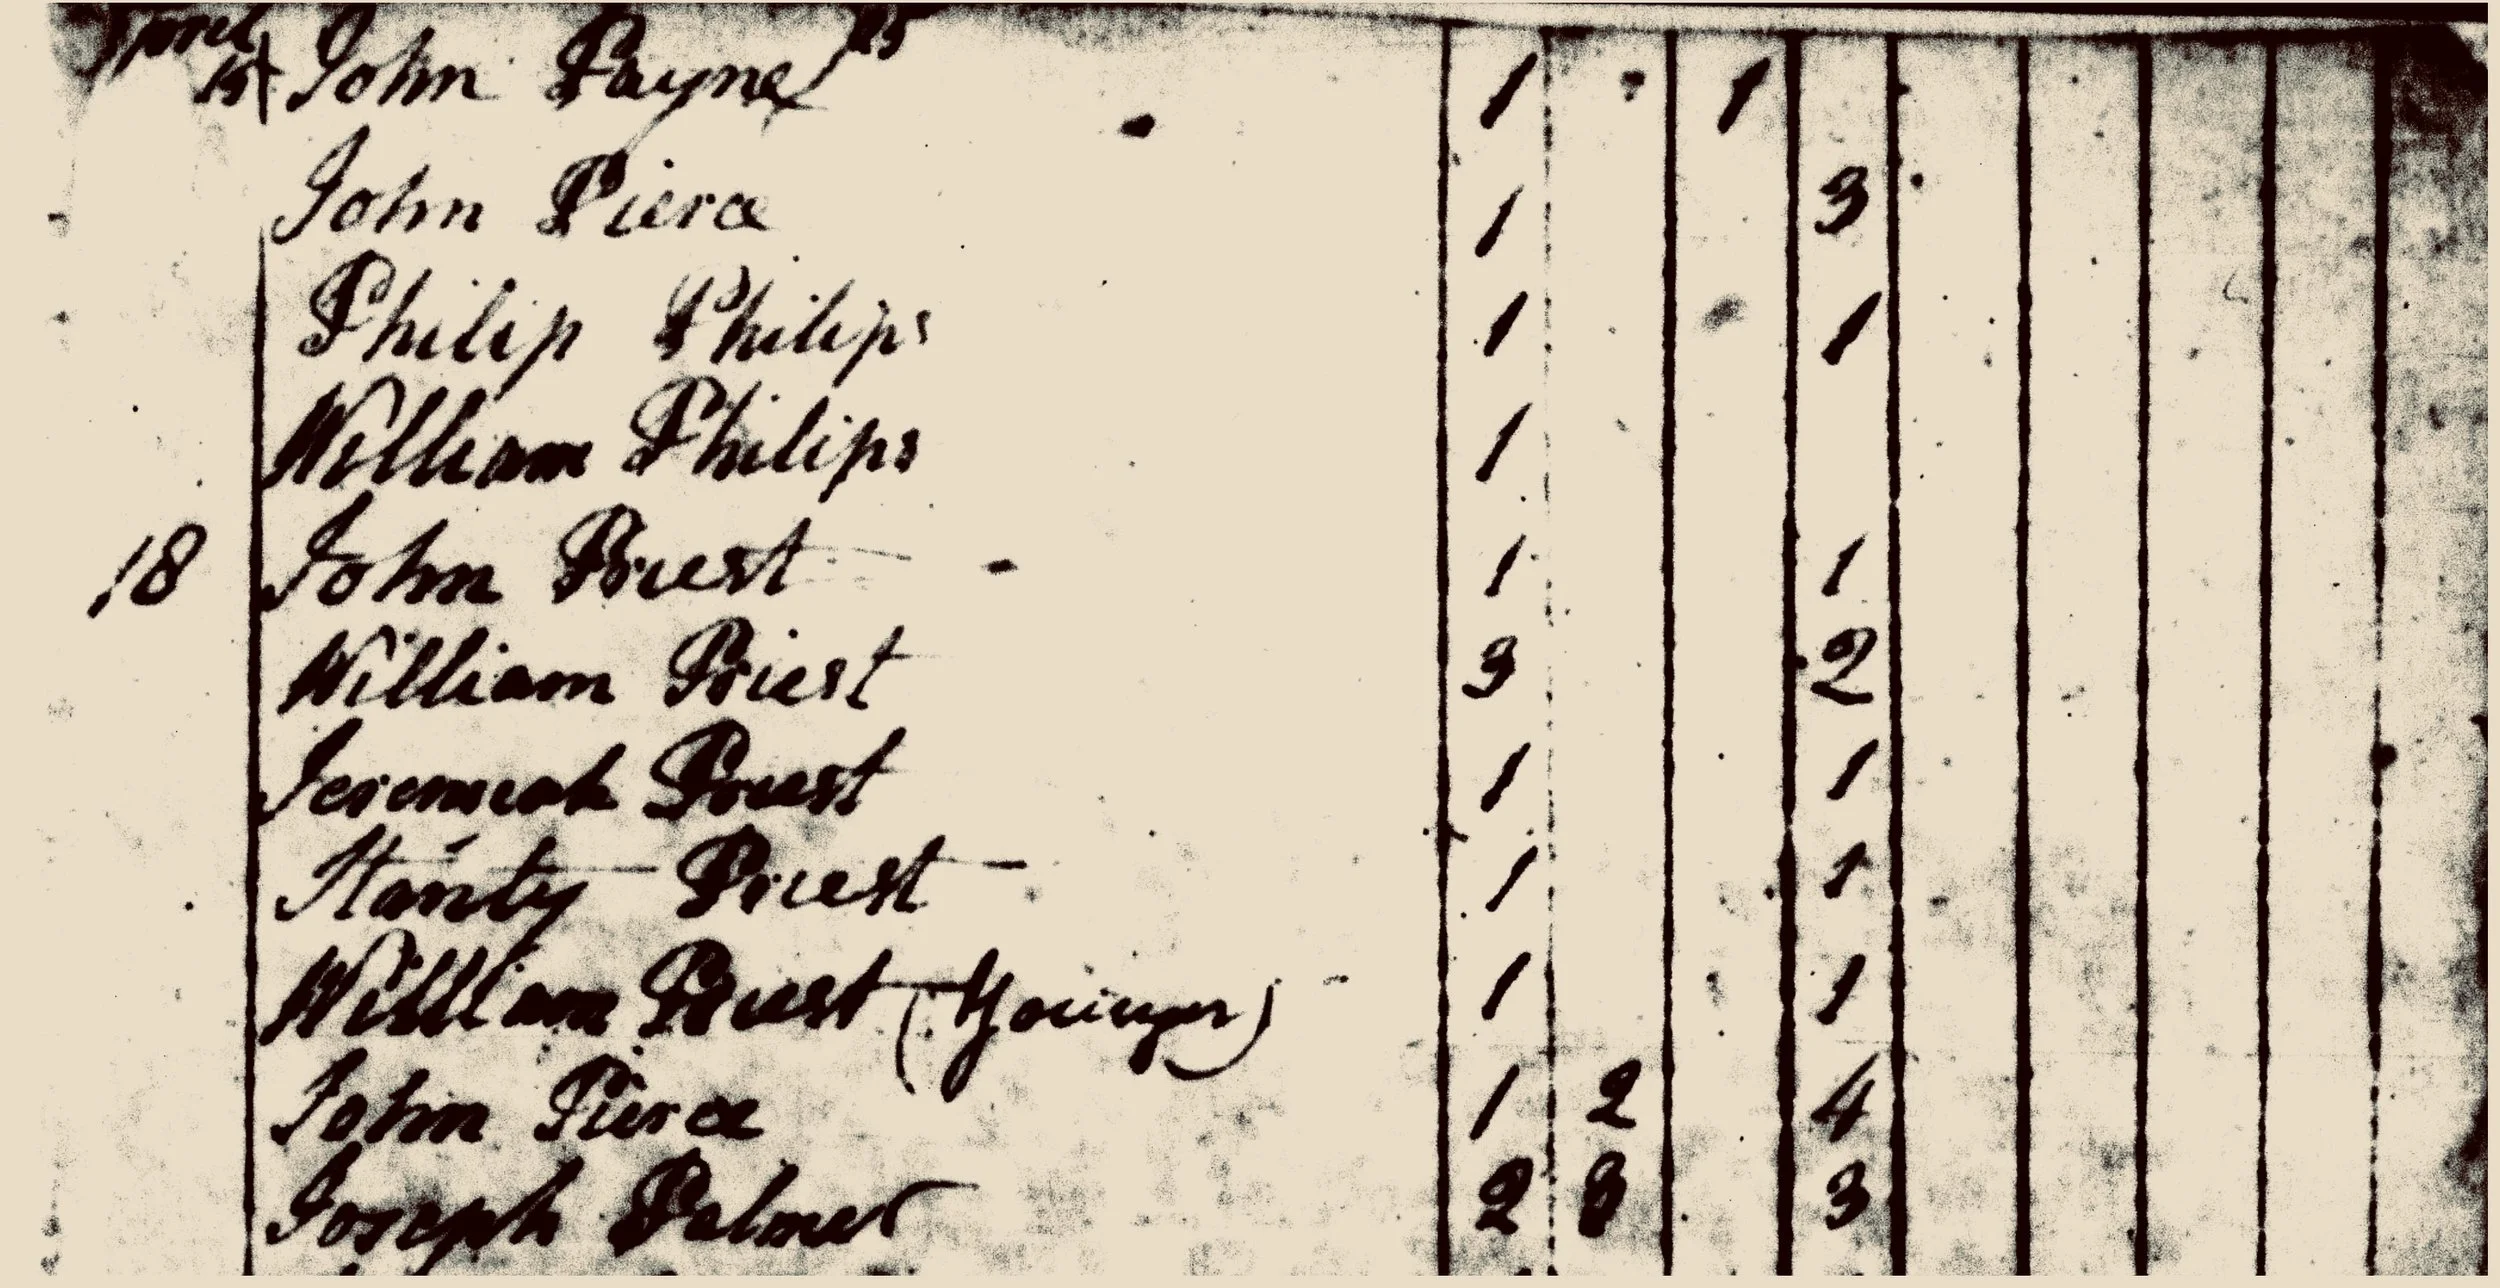 April
John Payne 1 1
John Pierce 1 3
Philip Philips 1 1
William Philips 1
18 John Priest 1 1
William Priest 3 2
Jeremiah Priest 1 1
Priest 1 1
William Priest (Younger) 1 1
John Pierce 1 2 4
Joseph Palmer 2 3 3